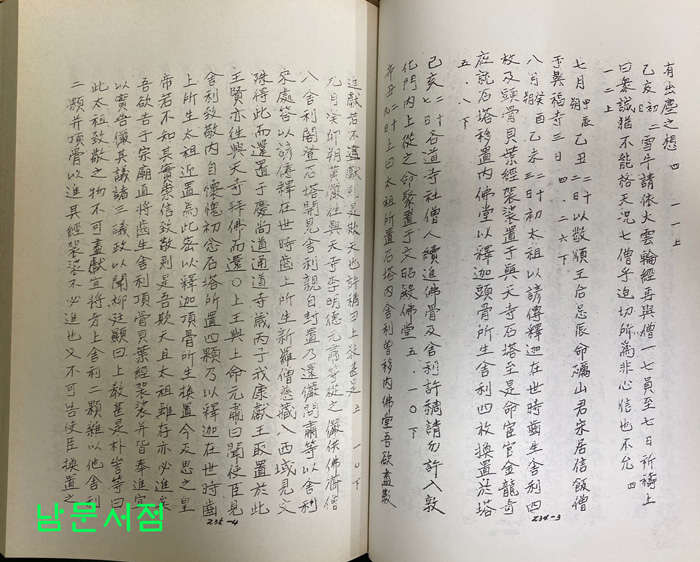 有出塵之想 四 一一上
乙亥 初 二 雩乎請依大雲輪經再與僧一七員至七日祈禱上
曰衆誠猶不能格天況七僧乎迫切所爲非心信也不允 四
一二上
七月 朔甲辰 乙丑 二十二 以敬順王后忌辰命礪山君宋居信飯僧
于興福寺三日 四 二六下
八月 朔癸酉 乙未 二十三 初太祖以諺傳釋迦在世時齒生舍利四
枚及頭骨貝葉經袈裟置于興天寺石塔至是命宦官金龍奇
夜詵石塔移置內佛堂以釋迦頭骨所生舍利四枚換置於塔
五 八下
己亥 二十七 各道寺社僧人續進佛骨及舍利許稠請勿許入敦
化門內上從之命聚置于文昭殿佛堂 五 一〇下
辛丑 二十九 上曰太祖所置石塔內舍利曾移內佛堂吾欲盡數
234-3
近獻若不盡獻則是欺天也許稠曰上教甚是 上 一〇下
九月 癸卯 朔 黃儼往興天寺李明德元肅等從之儼供佛齋僧
八舍利閣登石塔開見舍利親自封置乃還儼問肅等以舍利
來處答以諺傳釋在世時齒上所生新羅僧慈藏入西域見文
殊得此而還置于慶尙道通道寺歲丙子我康獻王取置於此
王賢亦往興天寺拜佛而還〇上王與上命元肅曰聞使臣見
舍利致敬內自慊懷初念石塔所置四顆乃以釋迦在世時齒
上所生太祖近置爲此密以釋迦頂骨所生換置今反思之皇
帝若不知其實崇信致敬則是吾欺天且太祖雖存亦必進矣
吾欲告于宗廟直將齒生舍利頂骨貝葉經袈裟并皆奉進宜
以實告儼其議諸三議政以聞柳廷顯曰上教甚是朴訔等曰
此太祖致敬之物不可盡獻宜將牙上舍利二顆雜以他舍利
二顆并頂骨以進其經袈裟不必進也又不可告使臣換置之
234-4
남문서점